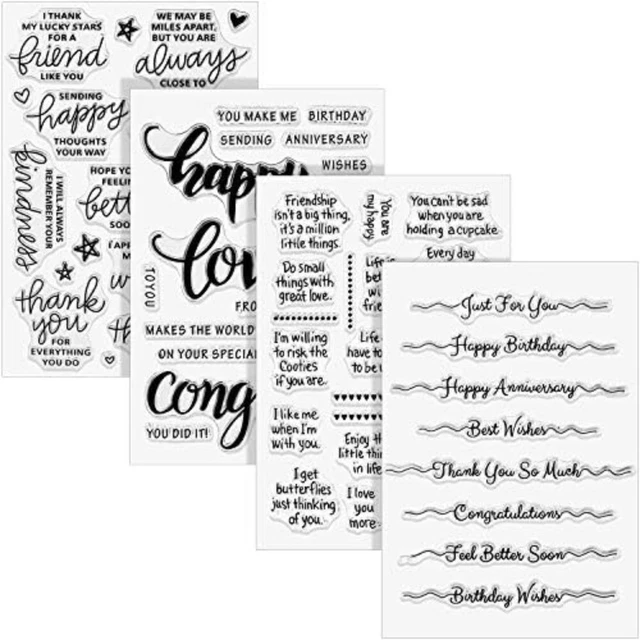 I THANK
MY LUCKY STARS
FOR A
friend
LIKE YOU
WE MAY BE
MILES APART,
BUT YOU ARE
always
CLOSE TO
SENDING
happy
THOUGHTS
YOUR WAY
kindness
I WILL ALWAYS
REMEMBER YOUR
HOPE
SOO
thank
you
FOR
EVERYTHING
YOU DO
YOU MAKE ME
BIRTHDAY
SENDING
ANNIVERSARY
WISHES
TO YOU
MAKES THE WORLD
ON YOUR
YOU DID IT!
Friendship
isn't a big thing,
it's a million
little things.
You are
my happy
You can't be sad
when you are
holding a cupcake.
Every day
Do small
things with
great love.
I'm willing
to risk the
Cooties
if you are.
Life
have to
to be
I like me
when I'm
with you.
Enjoy
little
in life
I get
butterflies
just thinking
of you.
I love
you
more
Just For You
Happy Birthday
Happy Anniversary
Best Wishes
Thank You So Much
Congratulations
Feel Better Soon
Birthday Wishes